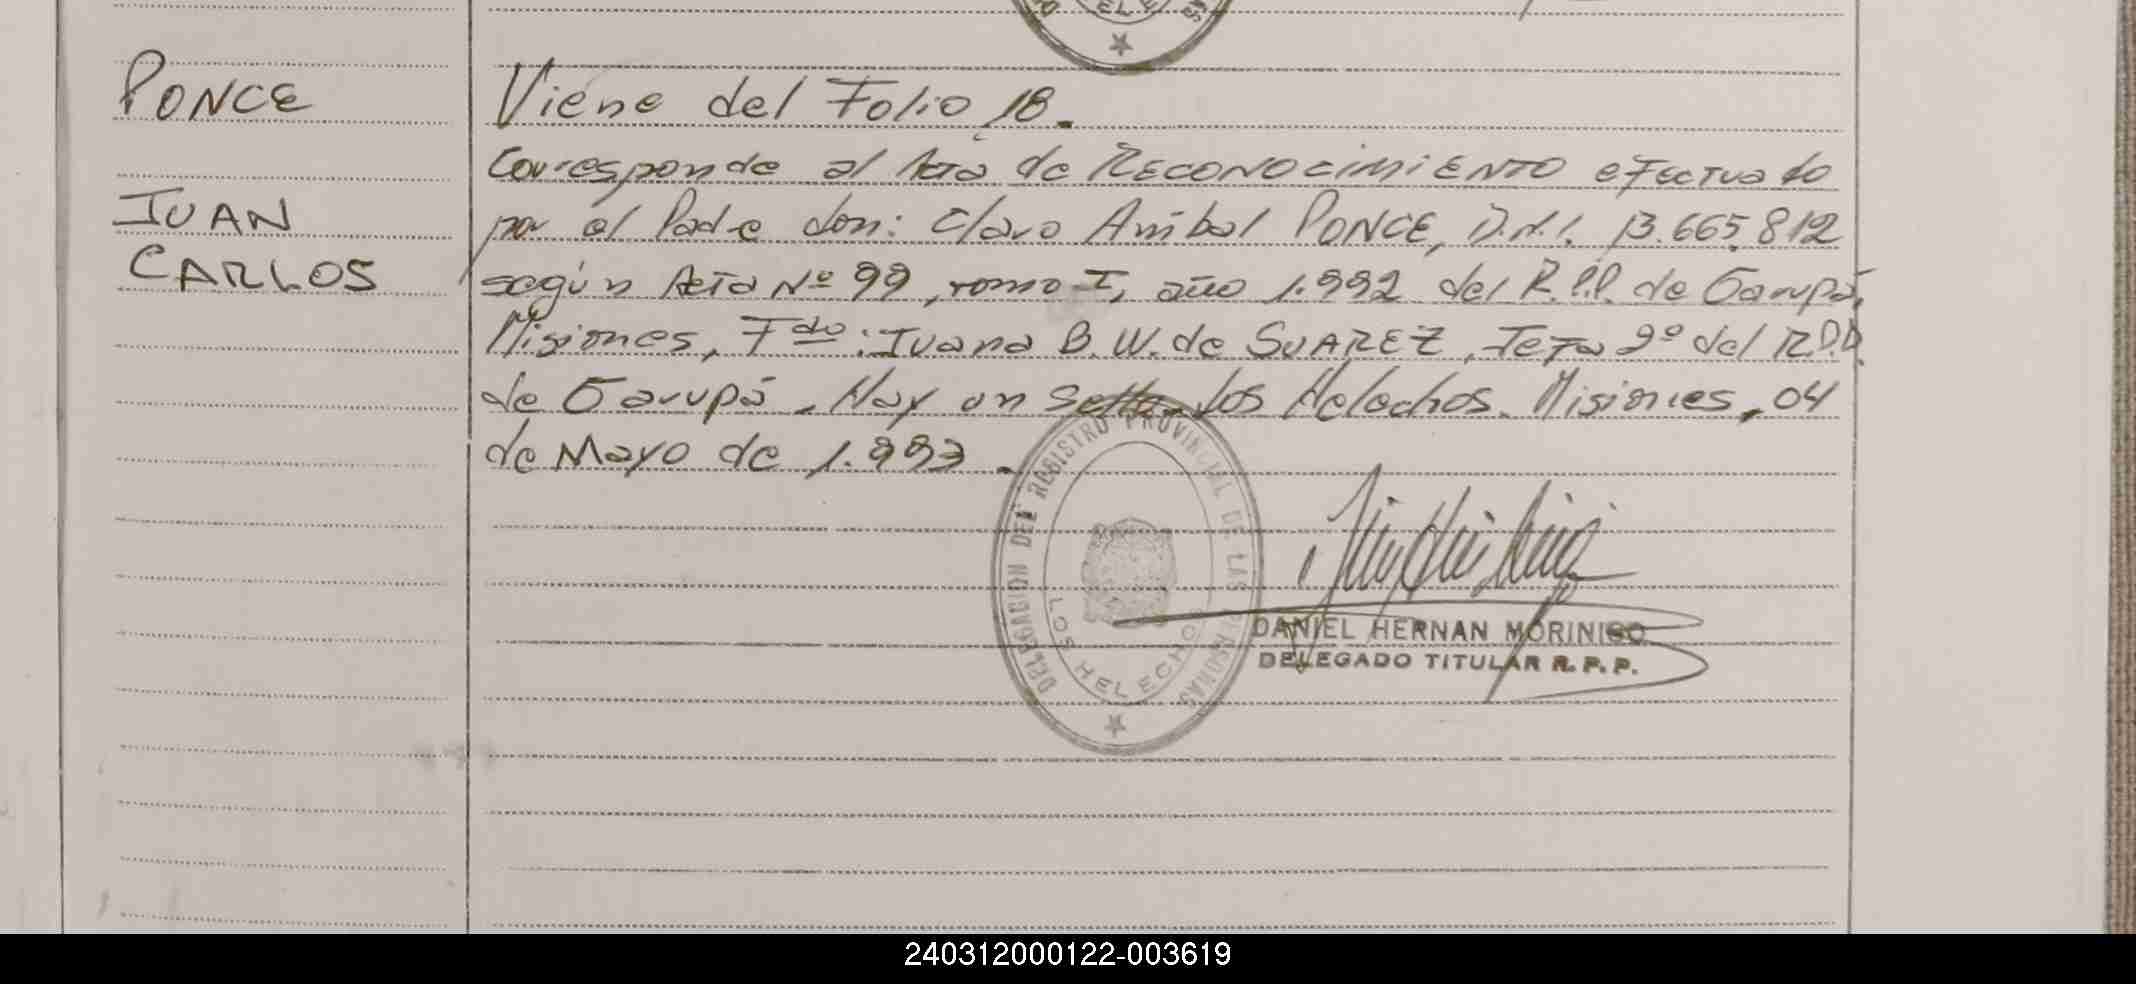 PONCE
JUAN
CARLOS
Viene del Folio 18.
Corresponde al Acta de RECONOCIMIENTO efectuado
por el Padre don: Claro Anibal PONCE, D.N.I. 13.665.812
según Acta Nº 99, tomo I, año 1.992 del R.P.P. de Garupá,
Misiones, Fdo: Juana B. W. de SUAREZ, Jefa 2º del R.P.P.
de Garupá. Hay un sello. Los Helechos. Misiones, 04
de Mayo de 1.993.
DELEGACION DEL REGISTRO PROVINCIAL DE LAS PERSONAS
LOS HELECHOS
DANIEL HERNAN MORINIGO
DELEGADO TITULAR R.P.P.
240312000122-003619